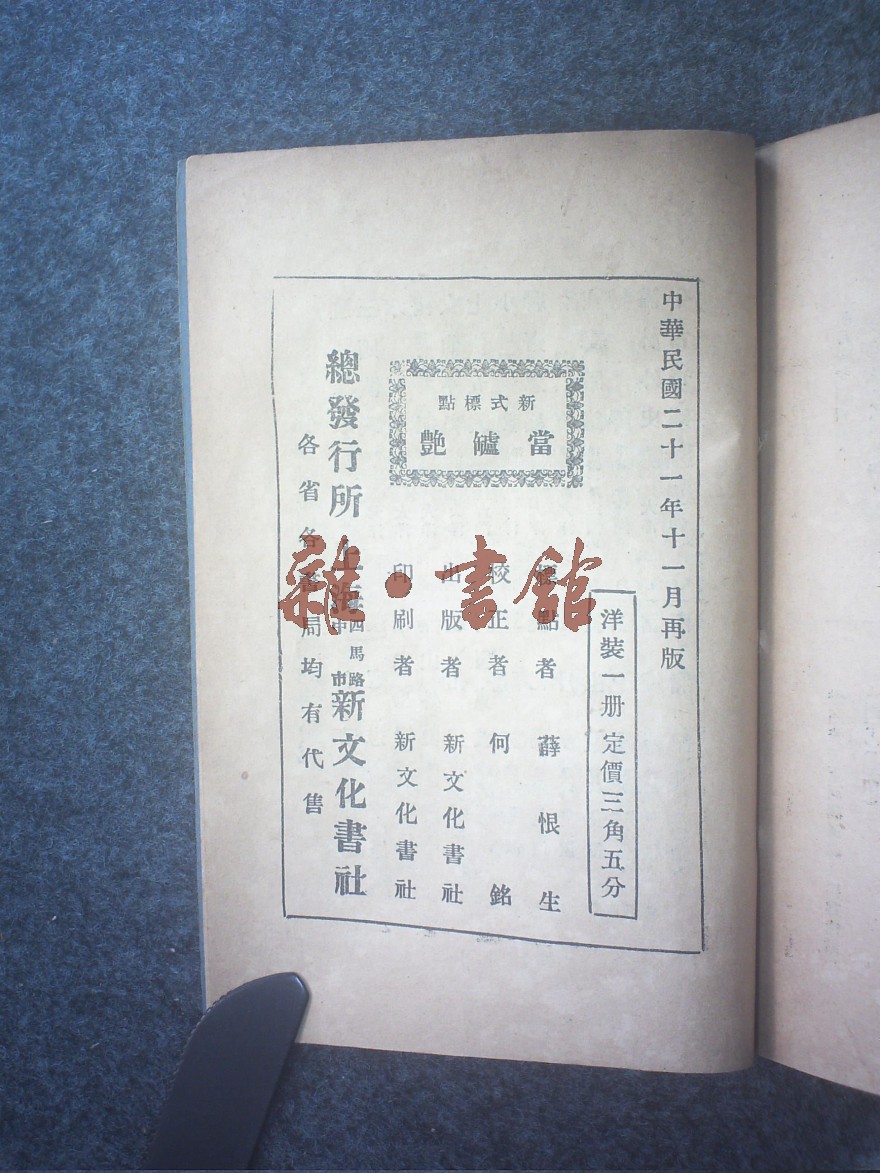 中華民國二十一年十一月再版
洋裝一册定價三角五分
新式標點
當罏艷
標點者 薛恨生
校正者 何銘
出版者 新文化書社
印刷者 新文化書社
總發行所 上海四馬路市新文化書社
各省各書局均有代售
雜·書館